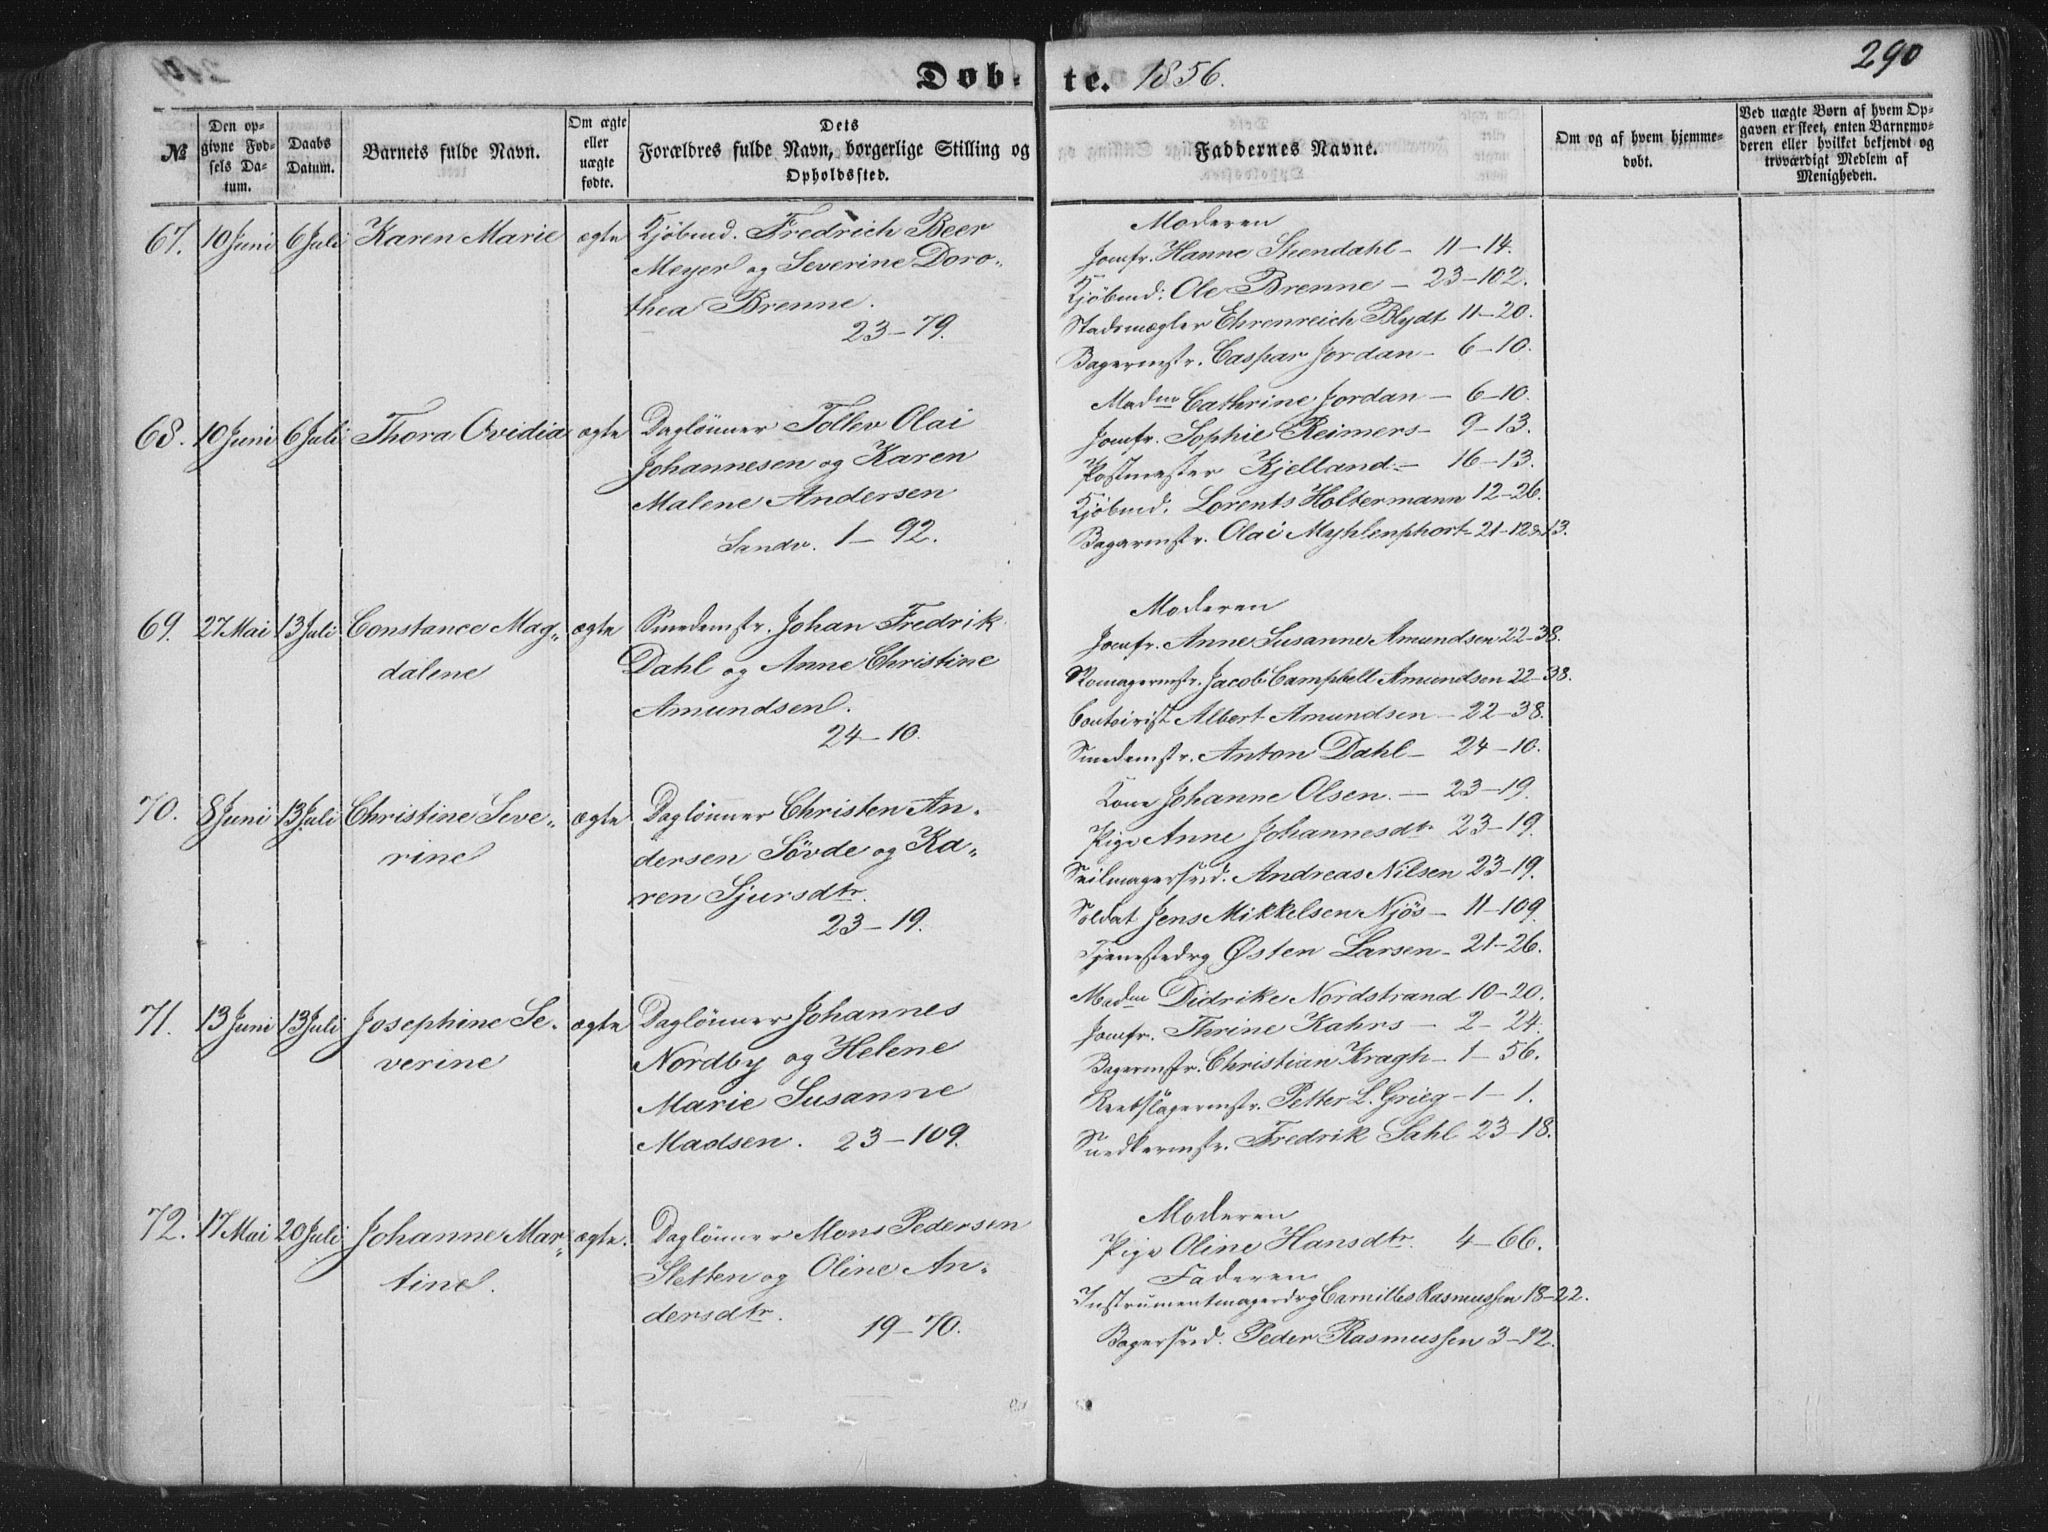 290
Døb- te. 1856.
№
Den op-
givne Fød-
sels Da-
tum.
Daabs
Datum.
Barnets fulde Navn.
Om ægte
eller
uægte
fødte.
Dets
Forældres fulde Navn, borgerlige Stilling og
Opholdssted.
Faddernes Navne.
Om og af hvem hjemme-
døbt.
Ved uægte Børn af hvem Op-
gaven er skeet, enten Barnemo-
deren eller hvilket bekjendt og
troværdigt Medlem af
Menigheden.
67. 10 Juni 6 Juli Karen Marie ægte Kjøbmd. Fredrich Beer
Meyer og Severine Doro-
thea Brenne.
23-79.
Moderen
Jomfr. Hanne Steendahl - 11-14.
Kjøbmd: Ole Brenne - 23-102.
Stadsmægler Ehrenreich Blydt 11-20.
Bagermstr. Caspar Jordan - 6-10.
68. 10 Juni 6 Juli Thora Ovidia ægte Daglønner Tollev Olai
Johannesen og Karen
Malene Andersen
Sandv. 1-92.
Madm Cathrine Jordan - 6-10.
Jomfr. Sophie Reimers - 9-13.
Postmester Kjelland - 16-13.
Kjøbmd. Lorents Holtermann 12-26.
Bagarmstr. Olai Myhlenphort 21-12&13.
69. 27 Mai 13 Juli Constance Mag-
dalene
ægte Smedemstr. Johan Fredrik
Dahl og Anne Christine
Amundsen.
24-10.
Moderen
Jomfr. Anne Susanne Amundsen 22-38.
Romagermstr. Jacob Campbell Amundsen 22-38.
Contoirist Albert Amundsen - 22-38.
Smedemstr. Anton Dahl - 24-10.
70. 8 Juni 13 Juli Christine Seve-
rine
ægte Daglønner Christen An-
dersen Søvde og Ka-
ren Sjursdtr.
23-19.
Kone Johanne Olsen. - 23-19.
Pige Anne Johannesdtr 23-19.
Seilmagersvd. Andreas Nilsen 23-19.
Soldat Jens Mikkelsen Njøs - 11-109.
Tjenestedrg Østen Larsen - 21-26.
71. 13 Juni 13 Juli Josephine Se-
verine
ægte Daglønner Johannes
Nordby og Helene
Marie Susanne
Madsen. 23-109.
Madm Didrike Nordstrand 10-20.
Jomfr. Thrine Kahrs - 2-24.
Bagermstr. Christian Kragh - 1-56.
Reebslagermstr. Petter L. Grieg - 1-1.
Snedkermstr. Fredrik Sahl 23-18.
72. 17 Mai 20 Juli Johanne Mar-
tine.
ægte. Daglønner Mons Pedersen
Sletten og Oline An-
dersdtr.
19-70.
Moderen
Pige Oline Hansdtr. 4-66.
Faderen
Instrumentmagerdrg Camilles Rasmussen 18-22.
Bagersvd. Peder Rasmussen 3-12.